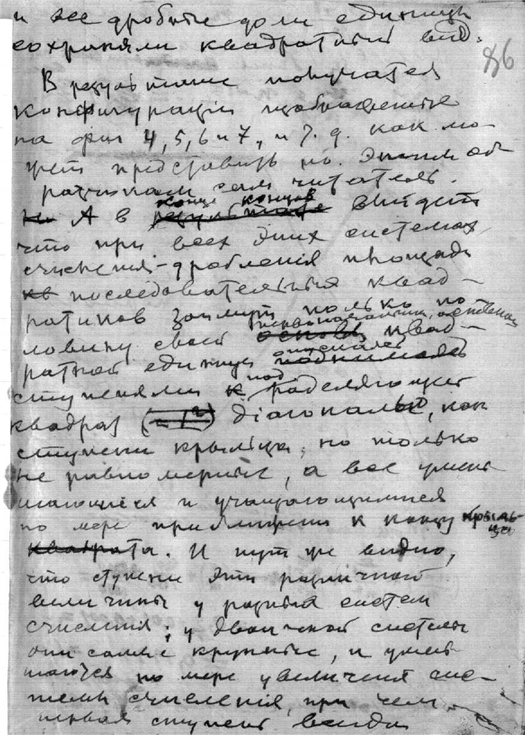 и все дробные доли единицы
сохраняли квадратный вид.
86
В результате получатся
конфигураціи изображенные
на фиг 4, 5, 6 и 7, и т. д. как мо
жет представить по этим об
разчикам сам читатель.
А в конце концов выйдет
что при всех этих системах
счисления-дробления площади
последовательных квад-
ратиков займут только по
ловину своей первоначальной, квад-
ратной единицы опускаясь
ступенями под разделяющей
квадрат діагональю, как
ступени крыльца, но только
не равномерные, а все умень
шающиеся и учащающимися
по мере приближения к концу крыль-
ца. И тут же видно,
что ступени эти различной
величины у разных систем
счисления; у двоичной системы
они самые крупные, и умень
шаются по мере увеличения сис-
темы счисления, при чем
первая ступень всегда